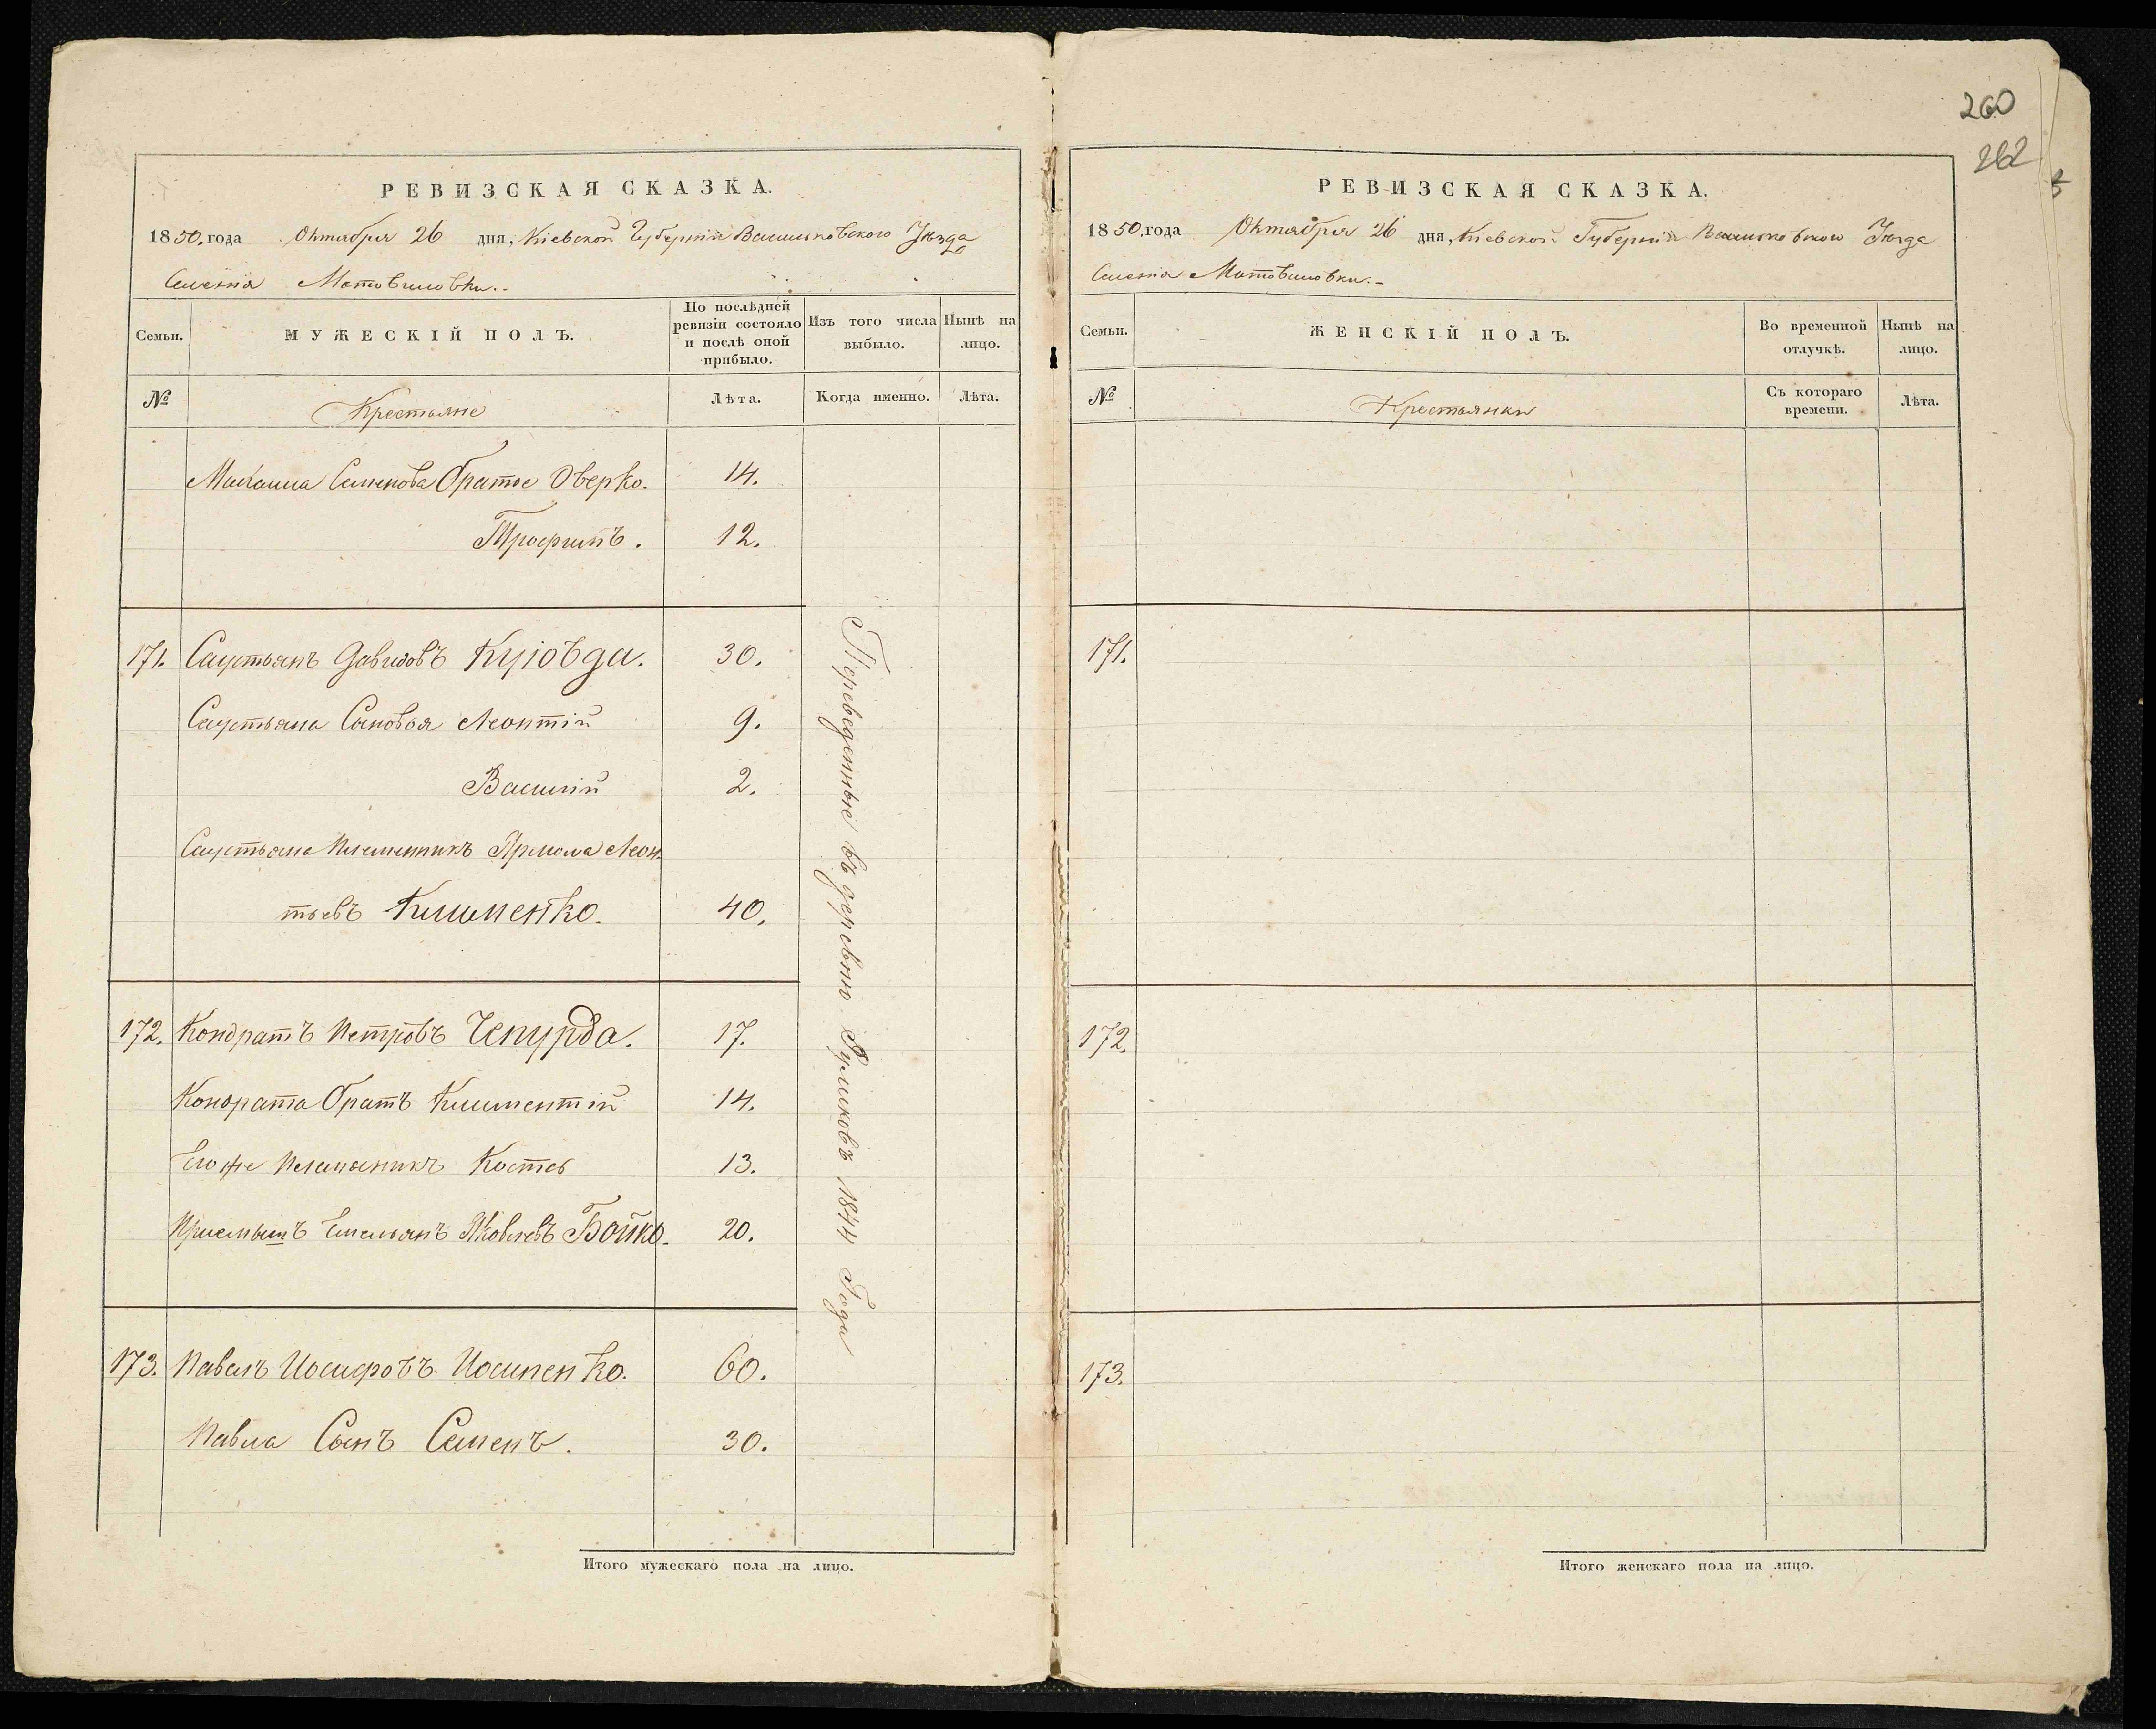 260
262
РЕВИЗСКАЯ СКАЗКА.
1850. года Октября 26 дня, Кіевской Губерніи Васильковского Уѣзда
Селенія Мотовиловки.
Семьи.
МУЖЕСКІЙ ПОЛЪ.
По послѣдней ревизіи состояло и послѣ оной прибыло.
Изъ того числа выбыло.
Нынѣ на лицо.
№
Крестьяне
Лѣта.
Когда именно.
Лѣта.
Семенова братье Оверко. 14.
Трофимъ. 12.
171. Саустьянъ Давидовъ 30.
Саустьяна Сыновья Леонтій 9.
Василій 2.
Саустьяна Племенникъ Ярмола Леон
тьевъ Клименко. 40.
172. Кондратъ Петровъ Чепурда. 17.
Кондрата братъ Климентій 14.
Его же Племяникъ Костя 13.
Приемышъ Емельянъ Яковлевъ Бойко. 20.
173. Павелъ Иосифовъ Иосипенко. 60.
Павла Сынъ Семенъ. 30.
Переведенные въ деревню 1844 Года
Итого мужескаго пола на лицо.
РЕВИЗСКАЯ СКАЗКА.
1850. года Октября 26 дня, Кіевской Губерніи Васильковского Уѣзда
Селенія Мотовиловки.
Семьи.
ЖЕНСКІЙ ПОЛЪ.
Во временной отлучкѣ.
Нынѣ на лицо.
№
Крестьянки
Съ котораго времени.
Лѣта.
171.
172.
173.
Итого женскаго пола на лицо.